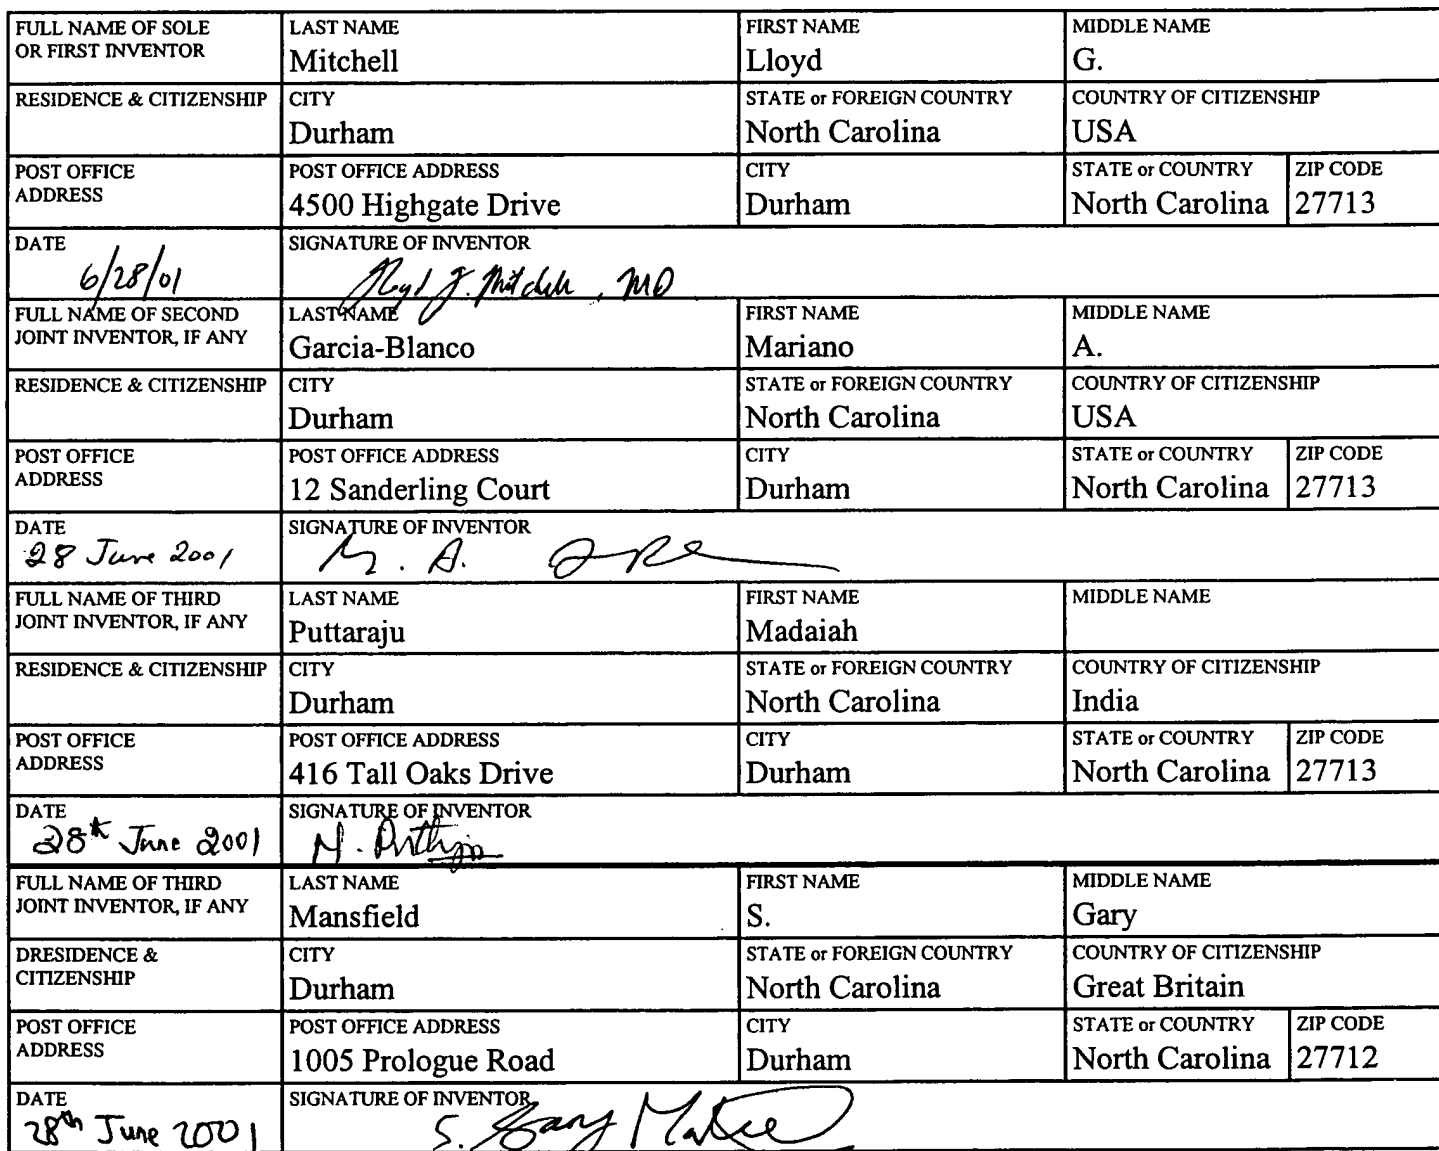 FULL NAME OF SOLE OR FIRST INVENTOR
LAST NAME
Mitchell
FIRST NAME
Lloyd
MIDDLE NAME
G.
RESIDENCE & CITIZENSHIP
CITY
Durham
STATE or FOREIGN COUNTRY
North Carolina
COUNTRY OF CITIZENSHIP
USA
POST OFFICE
ADDRESS
POST OFFICE ADDRESS
4500 Highgate Drive
CITY
Durham
STATE or COUNTRY
North Carolina
ZIP CODE
27713
DATE
6/28/01
SIGNATURE OF INVENTOR
Lloyd G. Mitchell, MD
FULL NAME OF SECOND
JOINT INVENTOR, IF ANY
LAST NAME
Garcia-Blanco
FIRST NAME
Mariano
MIDDLE NAME
A.
RESIDENCE & CITIZENSHIP
CITY
Durham
STATE or FOREIGN COUNTRY
North Carolina
COUNTRY OF CITIZENSHIP
USA
POST OFFICE
ADDRESS
POST OFFICE ADDRESS
12 Sanderling Court
CITY
Durham
STATE or COUNTRY
North Carolina
ZIP CODE
27713
DATE
28 June 2001
SIGNATURE OF INVENTOR
M. A.
FULL NAME OF THIRD
JOINT INVENTOR, IF ANY
LAST NAME
Puttaraju
FIRST NAME
Madaiah
MIDDLE NAME
RESIDENCE & CITIZENSHIP
CITY
Durham
STATE or FOREIGN COUNTRY
North Carolina
COUNTRY OF CITIZENSHIP
India
POST OFFICE
ADDRESS
POST OFFICE ADDRESS
416 Tall Oaks Drive
CITY
Durham
STATE or COUNTRY
North Carolina
ZIP CODE
27713
DATE
28th June 2001
SIGNATURE OF INVENTOR
M.
FULL NAME OF THIRD
JOINT INVENTOR, IF ANY
LAST NAME
Mansfield
FIRST NAME
S.
MIDDLE NAME
Gary
DRESIDENCE &
CITIZENSHIP
CITY
Durham
STATE or FOREIGN COUNTRY
North Carolina
COUNTRY OF CITIZENSHIP
Great Britain
POST OFFICE
ADDRESS
POST OFFICE ADDRESS
1005 Prologue Road
CITY
Durham
STATE or COUNTRY
North Carolina
ZIP CODE
27712
DATE
28th June 2001
SIGNATURE OF INVENTOR
S. Gary